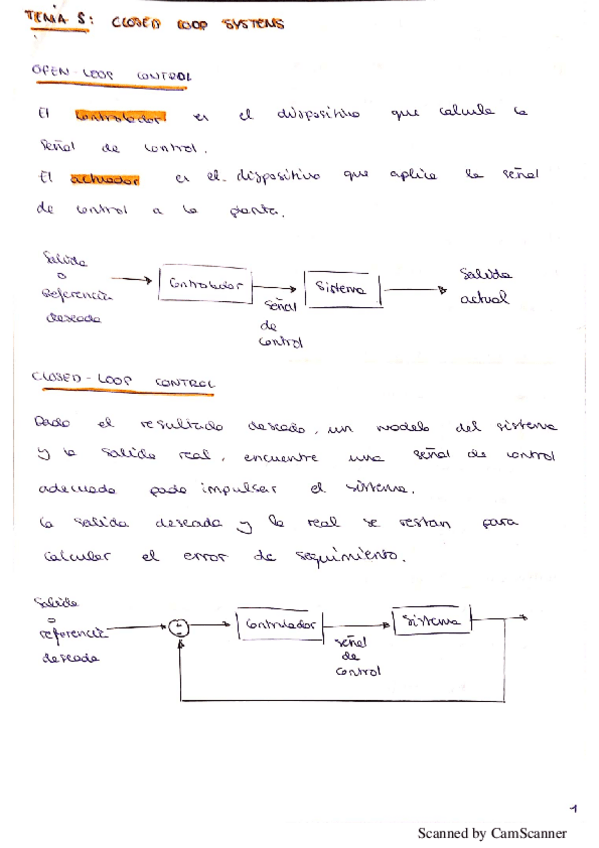 TEMA 5: CLOSED LOOP SYSTEMS
OPEN-LOOP CONTROL
El controlador es el dispositivo que calcula la
señal de control.
El actuador es el dispositivo que aplica la señal
de control a la planta.
Salida
o
referencia
deseada
Controlador
señal
de
control
Sistema
Salida
actual
CLOSED-LOOP CONTROL
Dado el resultado deseado, un modelo del sistema
y la salida real, encuentre una señal de control
adecuada pada impulsar el sistema.
La salida deseada y la real se restan para
calcular el error de seguimiento.
Salida
o
referencia
deseada
Controlador
señal
de
control
Sistema
1
Scanned by CamScanner